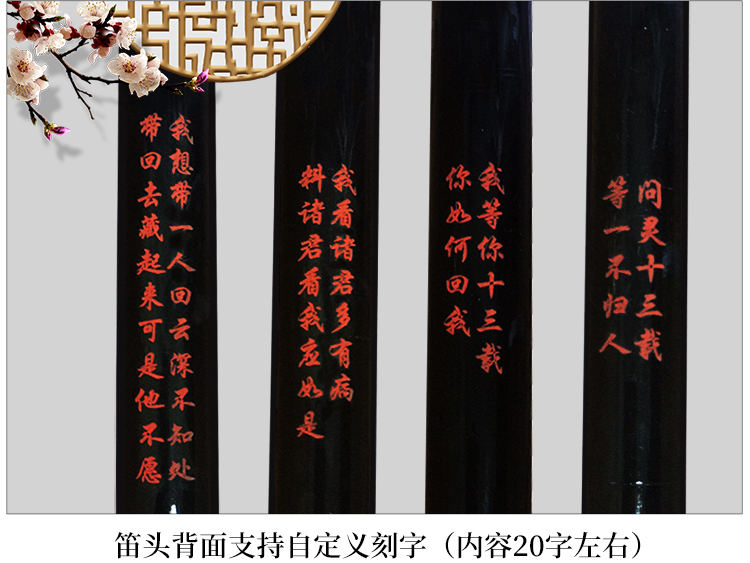 我想带一人回云深不知处
带回去藏起来可是他不愿
我看诸君多有病
料诸君看我应如是
我等你十三载
你如何回我
问灵十三载
等一不归人
笛头背面支持自定义刻字（内容20字左右）